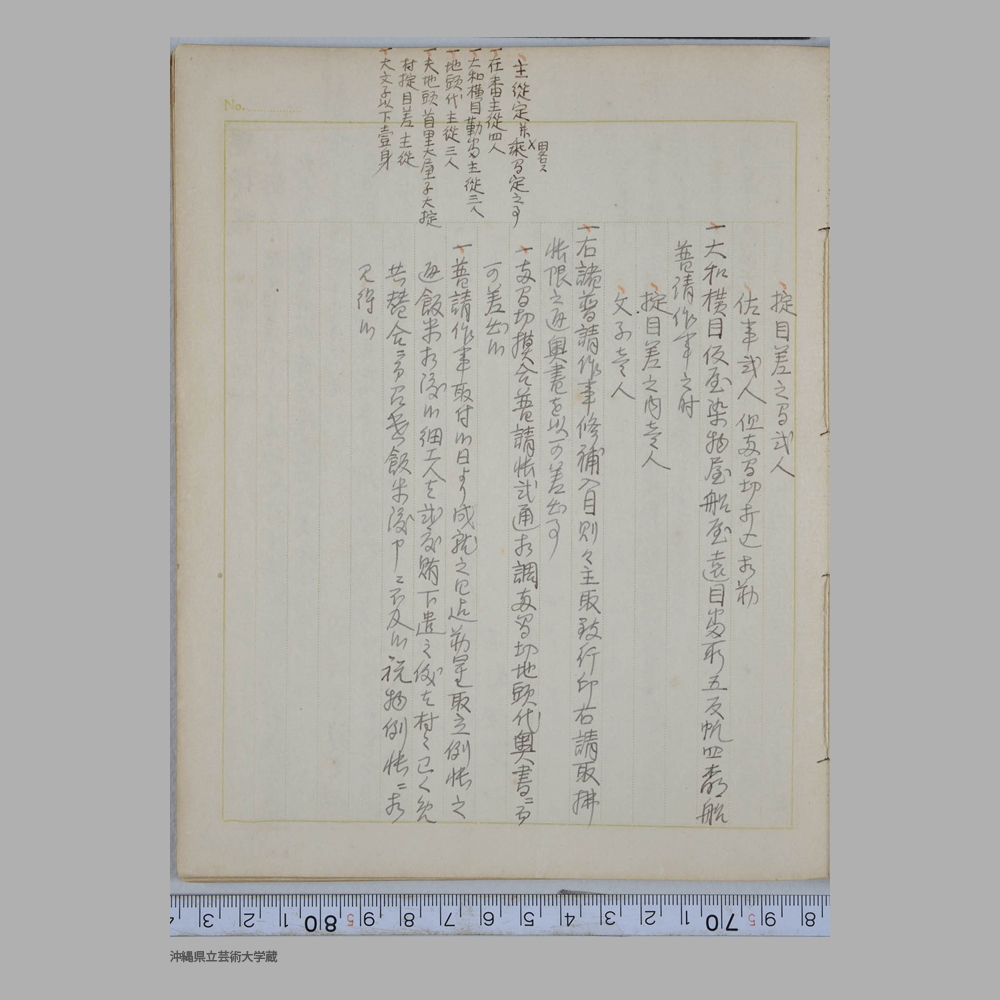 No.
主従定并乗馬定之事
一在番主従四人
一大和横目勤番主従三人
一地頭代主従三人
一夫地頭首里大屋子大掟
村掟目差主従
一大文子以下壹身
掟目差之間弐人
佐事弐人但両間切打込相勤
一大和横目仮屋染物屋船屋遠目番所五反帆四枚船
普請作事之時
掟目差之内壱人
文子壱人
一右諸普請作事修補入目則々主取致行印右請取払
帳限之通奥書を以可差出事
一両間切模合普請帳弐通相調両間切地頭代奥書ニ而
可差出候
一普請作事取付候日より成就之日迄勤星取立例帳之
通飯米相渡候細工人を弐度賄下遣之儀を村々
共替合
飯米渡申ニ不及候祝物例帳ニ相
見得候
沖縄県立芸術大学蔵